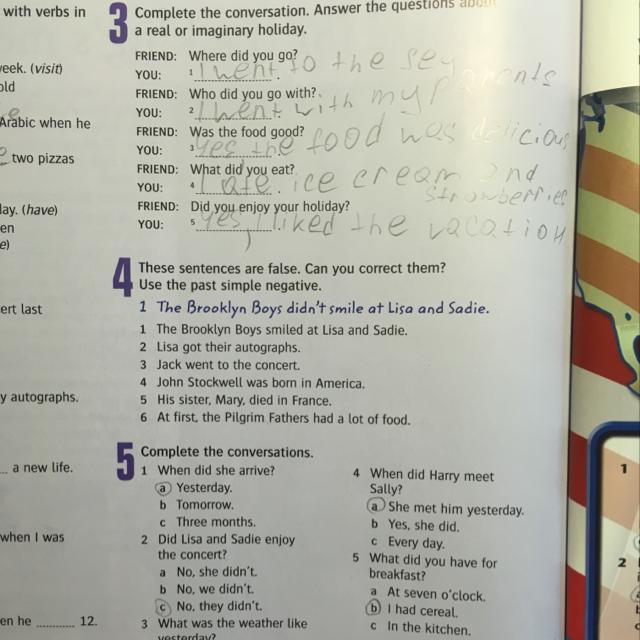 with verbs in
week. (visit)
old
Arabic when he
two pizzas
day. (have)
en
e)
ert last
y autographs.
... a new life.
when I was
en he ........... 12.
3 Complete the conversation. Answer the questions about
a real or imaginary holiday.
FRIEND: Where did you go?
YOU: 1 I went to the sey
FRIEND: Who did you go with?
YOU: 2 I went with my parents
FRIEND: Was the food good?
YOU: 3 yes the food was delicious
FRIEND: What did you eat?
YOU: 4 I ate ice cream and
strowberries
FRIEND: Did you enjoy your holiday?
YOU: 5 yes, I liked the vacation
4 These sentences are false. Can you correct them?
Use the past simple negative.
1 The Brooklyn Boys didn't smile at Lisa and Sadie.
1 The Brooklyn Boys smiled at Lisa and Sadie.
2 Lisa got their autographs.
3 Jack went to the concert.
4 John Stockwell was born in America.
5 His sister, Mary, died in France.
6 At first, the Pilgrim Fathers had a lot of food.
5 Complete the conversations.
1 When did she arrive?
a Yesterday.
b Tomorrow.
c Three months.
2 Did Lisa and Sadie enjoy
the concert?
a No, she didn't.
b No, we didn't.
c No, they didn't.
3 What was the weather like
yesterday?
4 When did Harry meet
Sally?
a She met him yesterday.
b Yes, she did.
c Every day.
5 What did you have for
breakfast?
a At seven o'clock.
b I had cereal.
c In the kitchen.
1
2